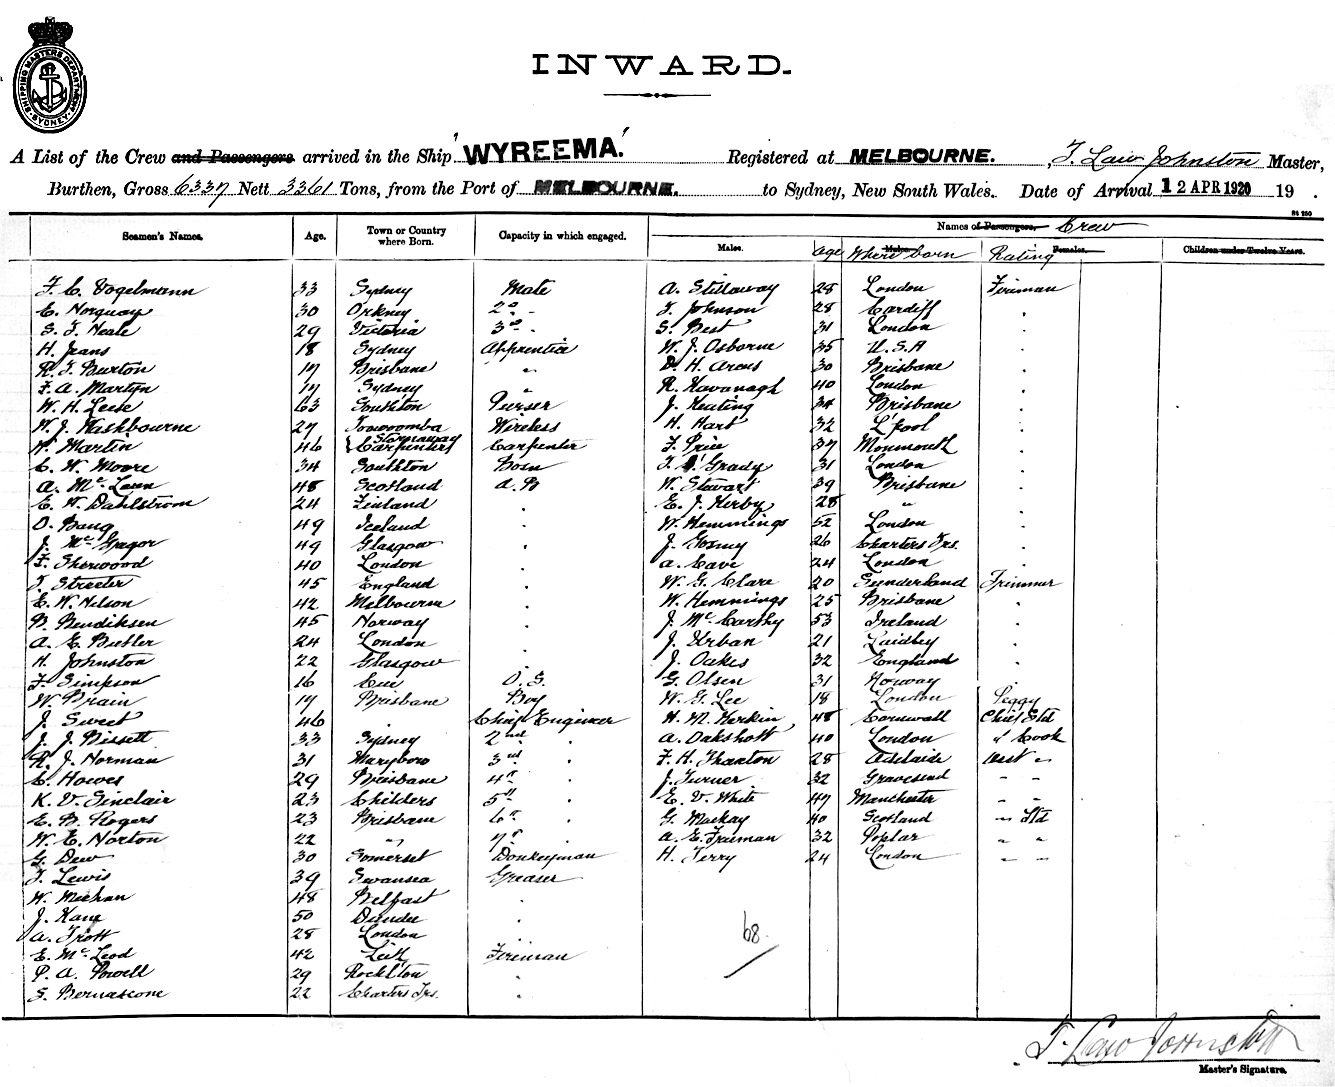 SHIPPING MASTERS DEPARTMENT SYDNEY
INWARD.
A List of the Crew and Passengers arrived in the Ship 'WYREEMA.' Registered at MELBOURNE. , T. Law Johnston Master,
Burthen, Gross 6337 Nett 3361 Tons, from the Port of MELBOURNE. to Sydney, New South Wales. Date of Arrival 12 APR 1920 19 .
Names of Passengers, Crew
Seamen's Names. Age. Town or Country where Born. Capacity in which engaged. Males. Age Males. Where born Rating Females. Children under Twelve Years.
F. C. Vogelmann 33 Sydney Mate A. Stillaway 28 London Fireman
C. Norquay 30 Orkney 2nd " J. Johnson 28 Cardiff "
S. J. Neale 29 Victoria 3rd " S. Best 31 London "
H. Jeans 18 Sydney Apprentice W. J. Osborne 35 U.S.A "
R. J. Burton 17 Brisbane " D. H. Arcus 30 Brisbane "
F. A. Martyn 17 Sydney " R. Kavanagh 40 London "
W. H. Leese 63 Southton Purser J. Keating 34 Brisbane "
W. J. Washbourne 27 Toowoomba Wireless H. Hart 32 L'pool "
W. Martin 46 Stornaway Carpenters Carpenter F. Price 37 Monmouth "
C. W. Moore 34 Southton Bosn T. O'Grady 31 London "
A. McLaren 48 Scotland A.B W. Stewart 39 Brisbane "
E. W. Dahlstrom 24 Finland " E. J. Kerby 28 " "
O. Bang 49 Iceland " W. Hemmings 52 London "
J. McGregor 49 Glasgow " J. 26 Charters Trs. "
F. Sherwood 40 London " A. Cave 24 London "
T. Streeter 45 England " W. G. Clare 20 Sunderland Trimmer
E. W. Nelson 42 Melbourne " W. Hemmings 25 Brisbane "
B. Bendiksen 45 Norway " J. McCarthy 53 Ireland "
A. E. Butler 24 London " J. Urban 21 Laidley "
H. Johnston 22 Glasgow " J. Oakes 32 England "
F. Simpson 16 O.S. G. Olsen 31 Norway "
W. Brain 17 Brisbane Boy W. G. Lee 18 London Peggy
J. Sweet 46 " Chief Engineer H. M. Kerkin 48 Cornwall Chief Std
J. J. Bissett 33 Sydney 2nd " A. Oakshott 40 London " Cook
R. J. Norman 31 Marybow 3rd " F. H. Thaxton 28 Adelaide Asst "
C. Howes 29 Brisbane 4th " J. Turner 32 Gravesend " "
K. V. Sinclair 23 Childers 5th " E. V. White 47 Manchester " "
E. B. Rogers 23 Brisbane 6th " G. Mackay 40 Scotland " Std
W. E. Norton 22 " 7th " A. E. Freeman 32 Poplar " "
G. Dew 30 Somerset Donkeyman H. Terry 24 London " "
T. Lewis 39 Swansea Greaser
W. Meehan 48 Belfast "
J. Kane 50 Dundee "
A. Trott 28 London "
E. McLeod 42 Leith Fireman
P. A. Powell 29 Rockhton "
S. Bernascone 22 Charters Trs. "
68
T. Law Johnston
Master's Signature.